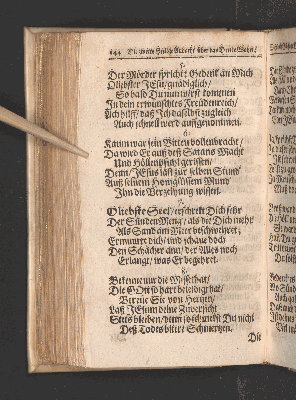 144 Die zweite Heilige Arbeit/ über das Dritte Wohrt/
5.
Der Mörder spricht: Gedenk an Mich
O liebster JEsu/ gnädiglich/
So bald Du nun wirst kommen
In dein erwünschtes Freudenreich/
Ach hilff/ daß Ich daselbst zugleich
Auch schnell werd aufgenommen.
6.
Kaum war sein Bitten vollenbracht/
Da ward Er auß deß Satans Macht
Und Höllenpfuhl gerissen/
Denn/ JEsus läst zur selben Stund'
Auß seinem Honigsüssen Mund'
Ihn die Verzeihung wissen.
7.
O liebste Seel/ erschrekt Dich sehr
Der Sünden Meng/ als der Dich mehr
Als Sand am Meer beschweiret;
Ermuntre dich/ und schaue doch
Den Schächer an/ der Alles noch
Erlangt/ was Er begehret.
8.
Bekenne nur die Missethat/
Die GOtt so hart beleidigt hat/
Bereüe Sie von Hertzen/
Laß JEsum deine Zuversicht
Stets bleiben/ denn so fühlest Du nicht
Deß Todes bittre Schmertzen.
Die